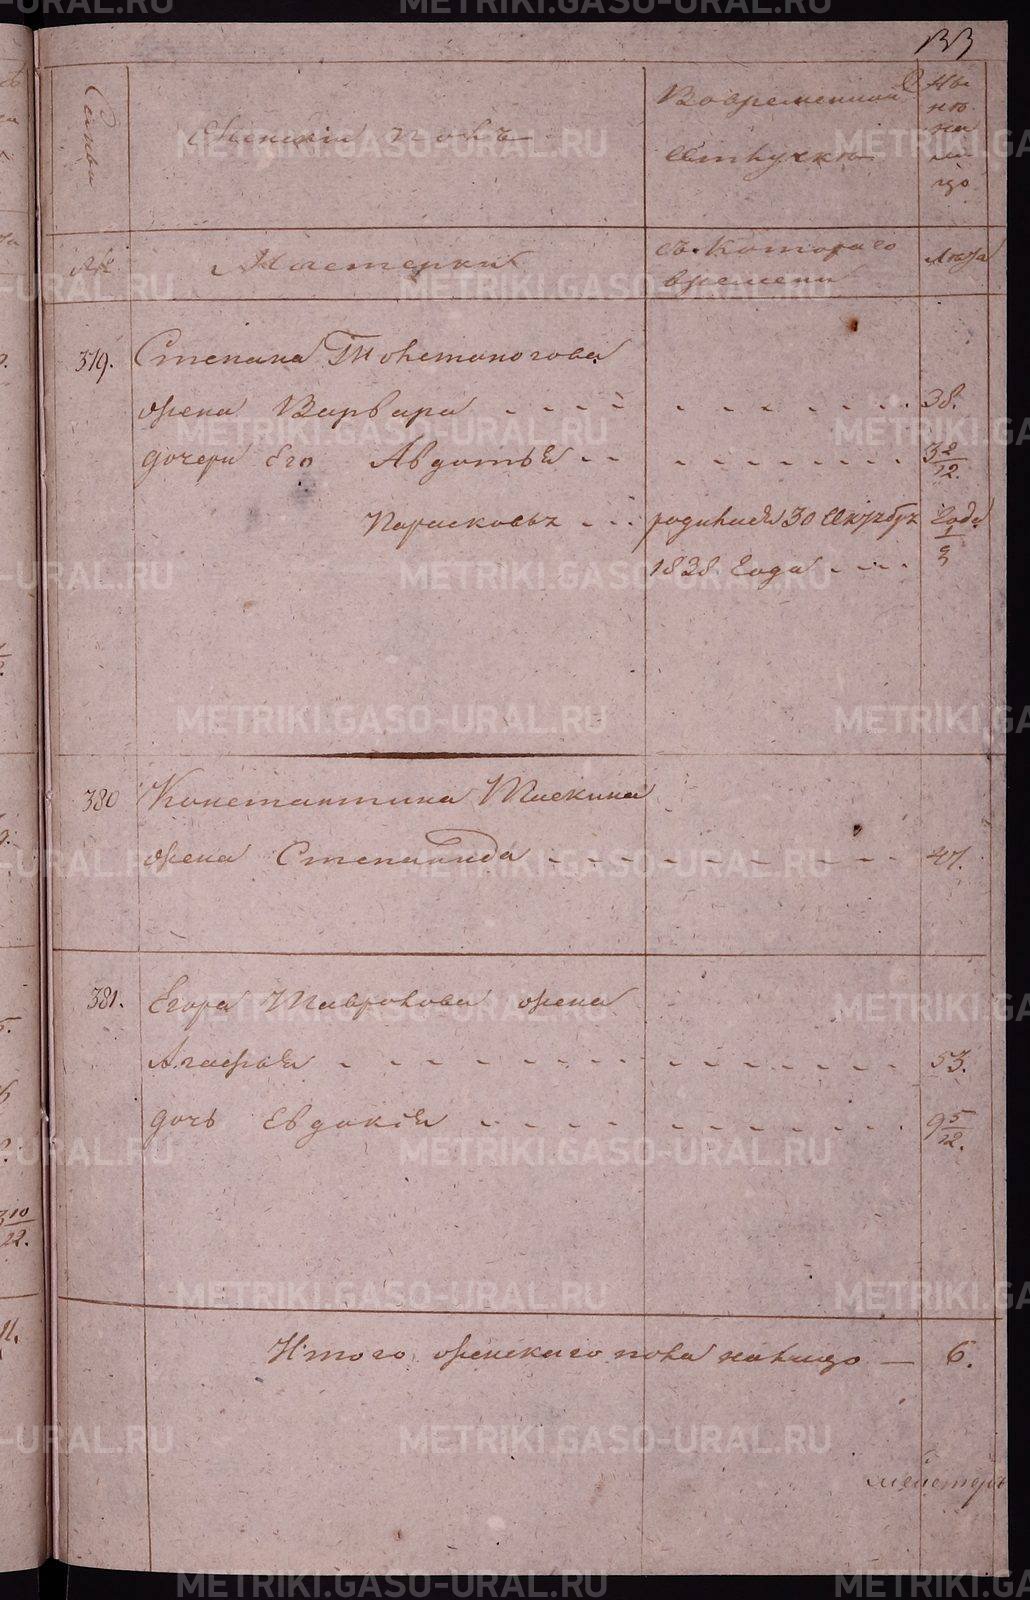 133
Семьи
Женскiй полъ
Во временной
Отлучке
Ны
не
на
ли
цо
№
Мастерки
съ котораго
времени
Лета
379.
Степана Толстоногова
жена Варвара
38.
дочери его Авдотья
3 2/12.
Парасковья
родилася 30 Октября
1838 года
года
1/2
380
Константина Шаекина
жена Степанида
47.
381.
Егора Шаврохова жена
Агафья
53.
дочь Евдокiя
9 5/12.
Итого женскаго пола налицо — 6.
мейстеръ
METRIKI.GASO-URAL.RU